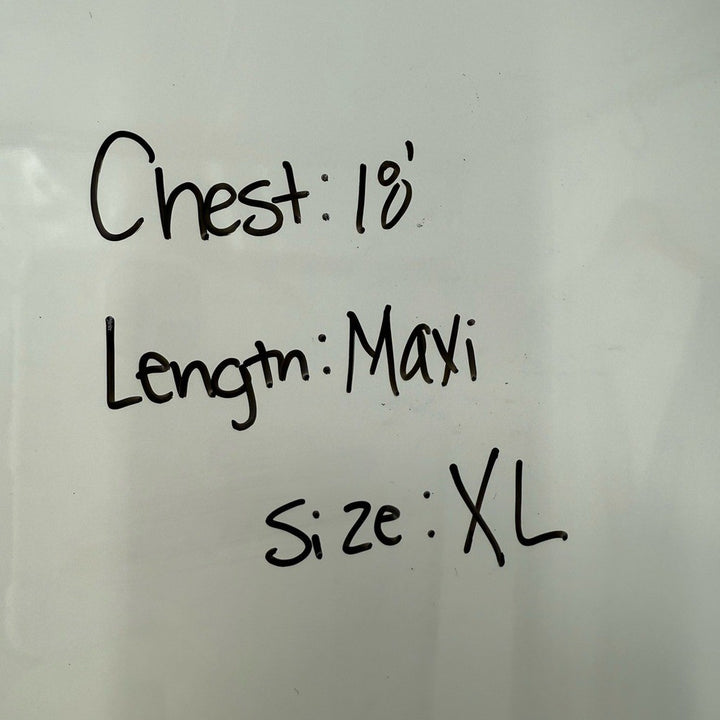 Chest: 18'
Length: Maxi
Size: XL